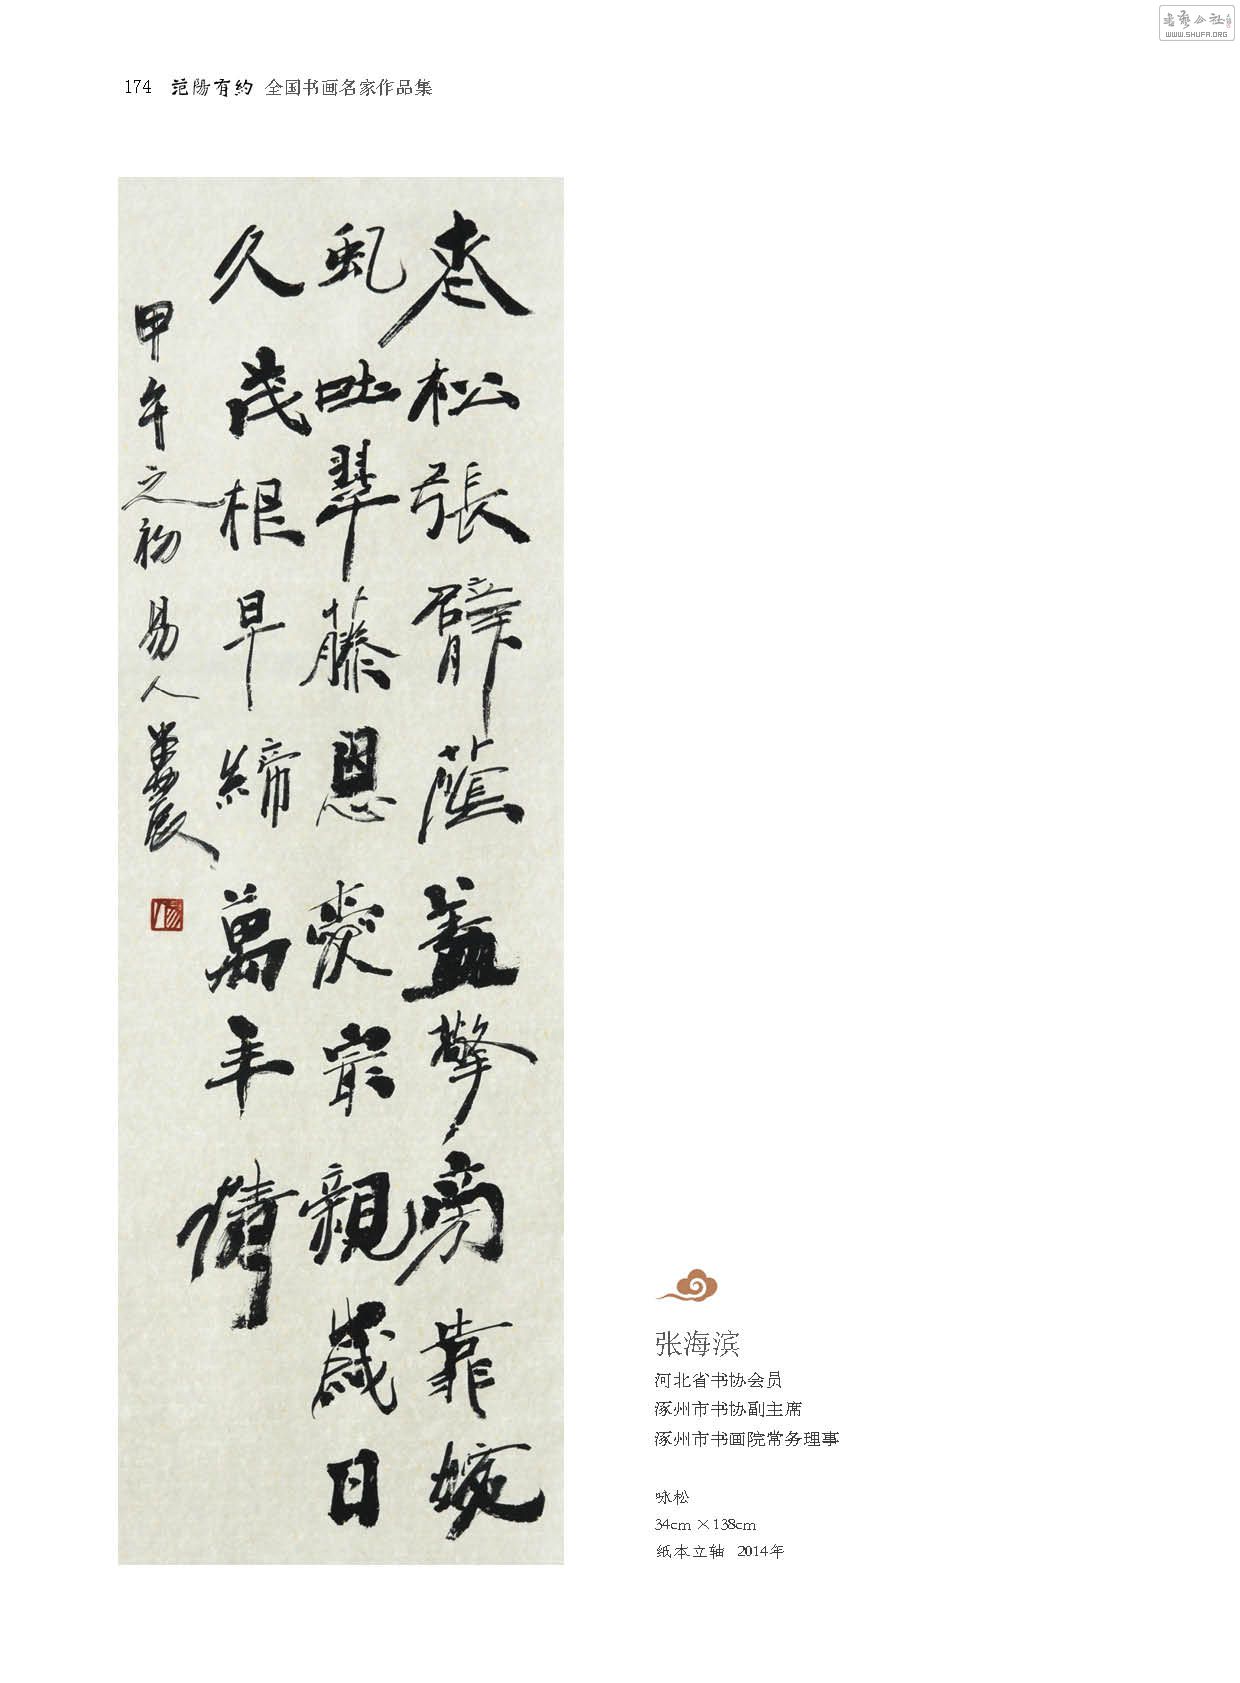 書藝公社
WWW.SHUFA.ORG
174 范陽有約 全国书画名家作品集
老松張臂蔭蓋擎旁靠婉
虬吐翠藤恩愛最親歲日
久茂根早締萬年情
甲午之初易人
张海滨
河北省书协会员
涿州市书协副主席
涿州市书画院常务理事
咏松
34cm×138cm
纸本立轴 2014年